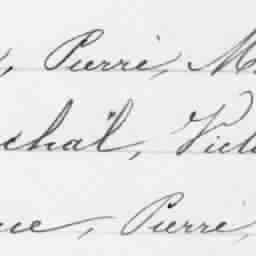 , Pierre, M
chal, Vict
ue, Pierre,